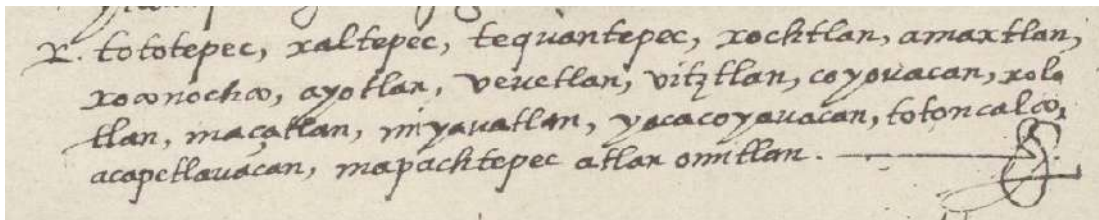 x. tototepec, xaltepec, tequantepec, xochtlan, amaxtlan,
xoconochco, ayotlan, vevetlan, vitztlan, coyovacan, xolo
tlan, maçatlan, miyavatlan, yacacoyavacan, totoncalco,
acapetlavacan, mapachtepec atlan omitlan.